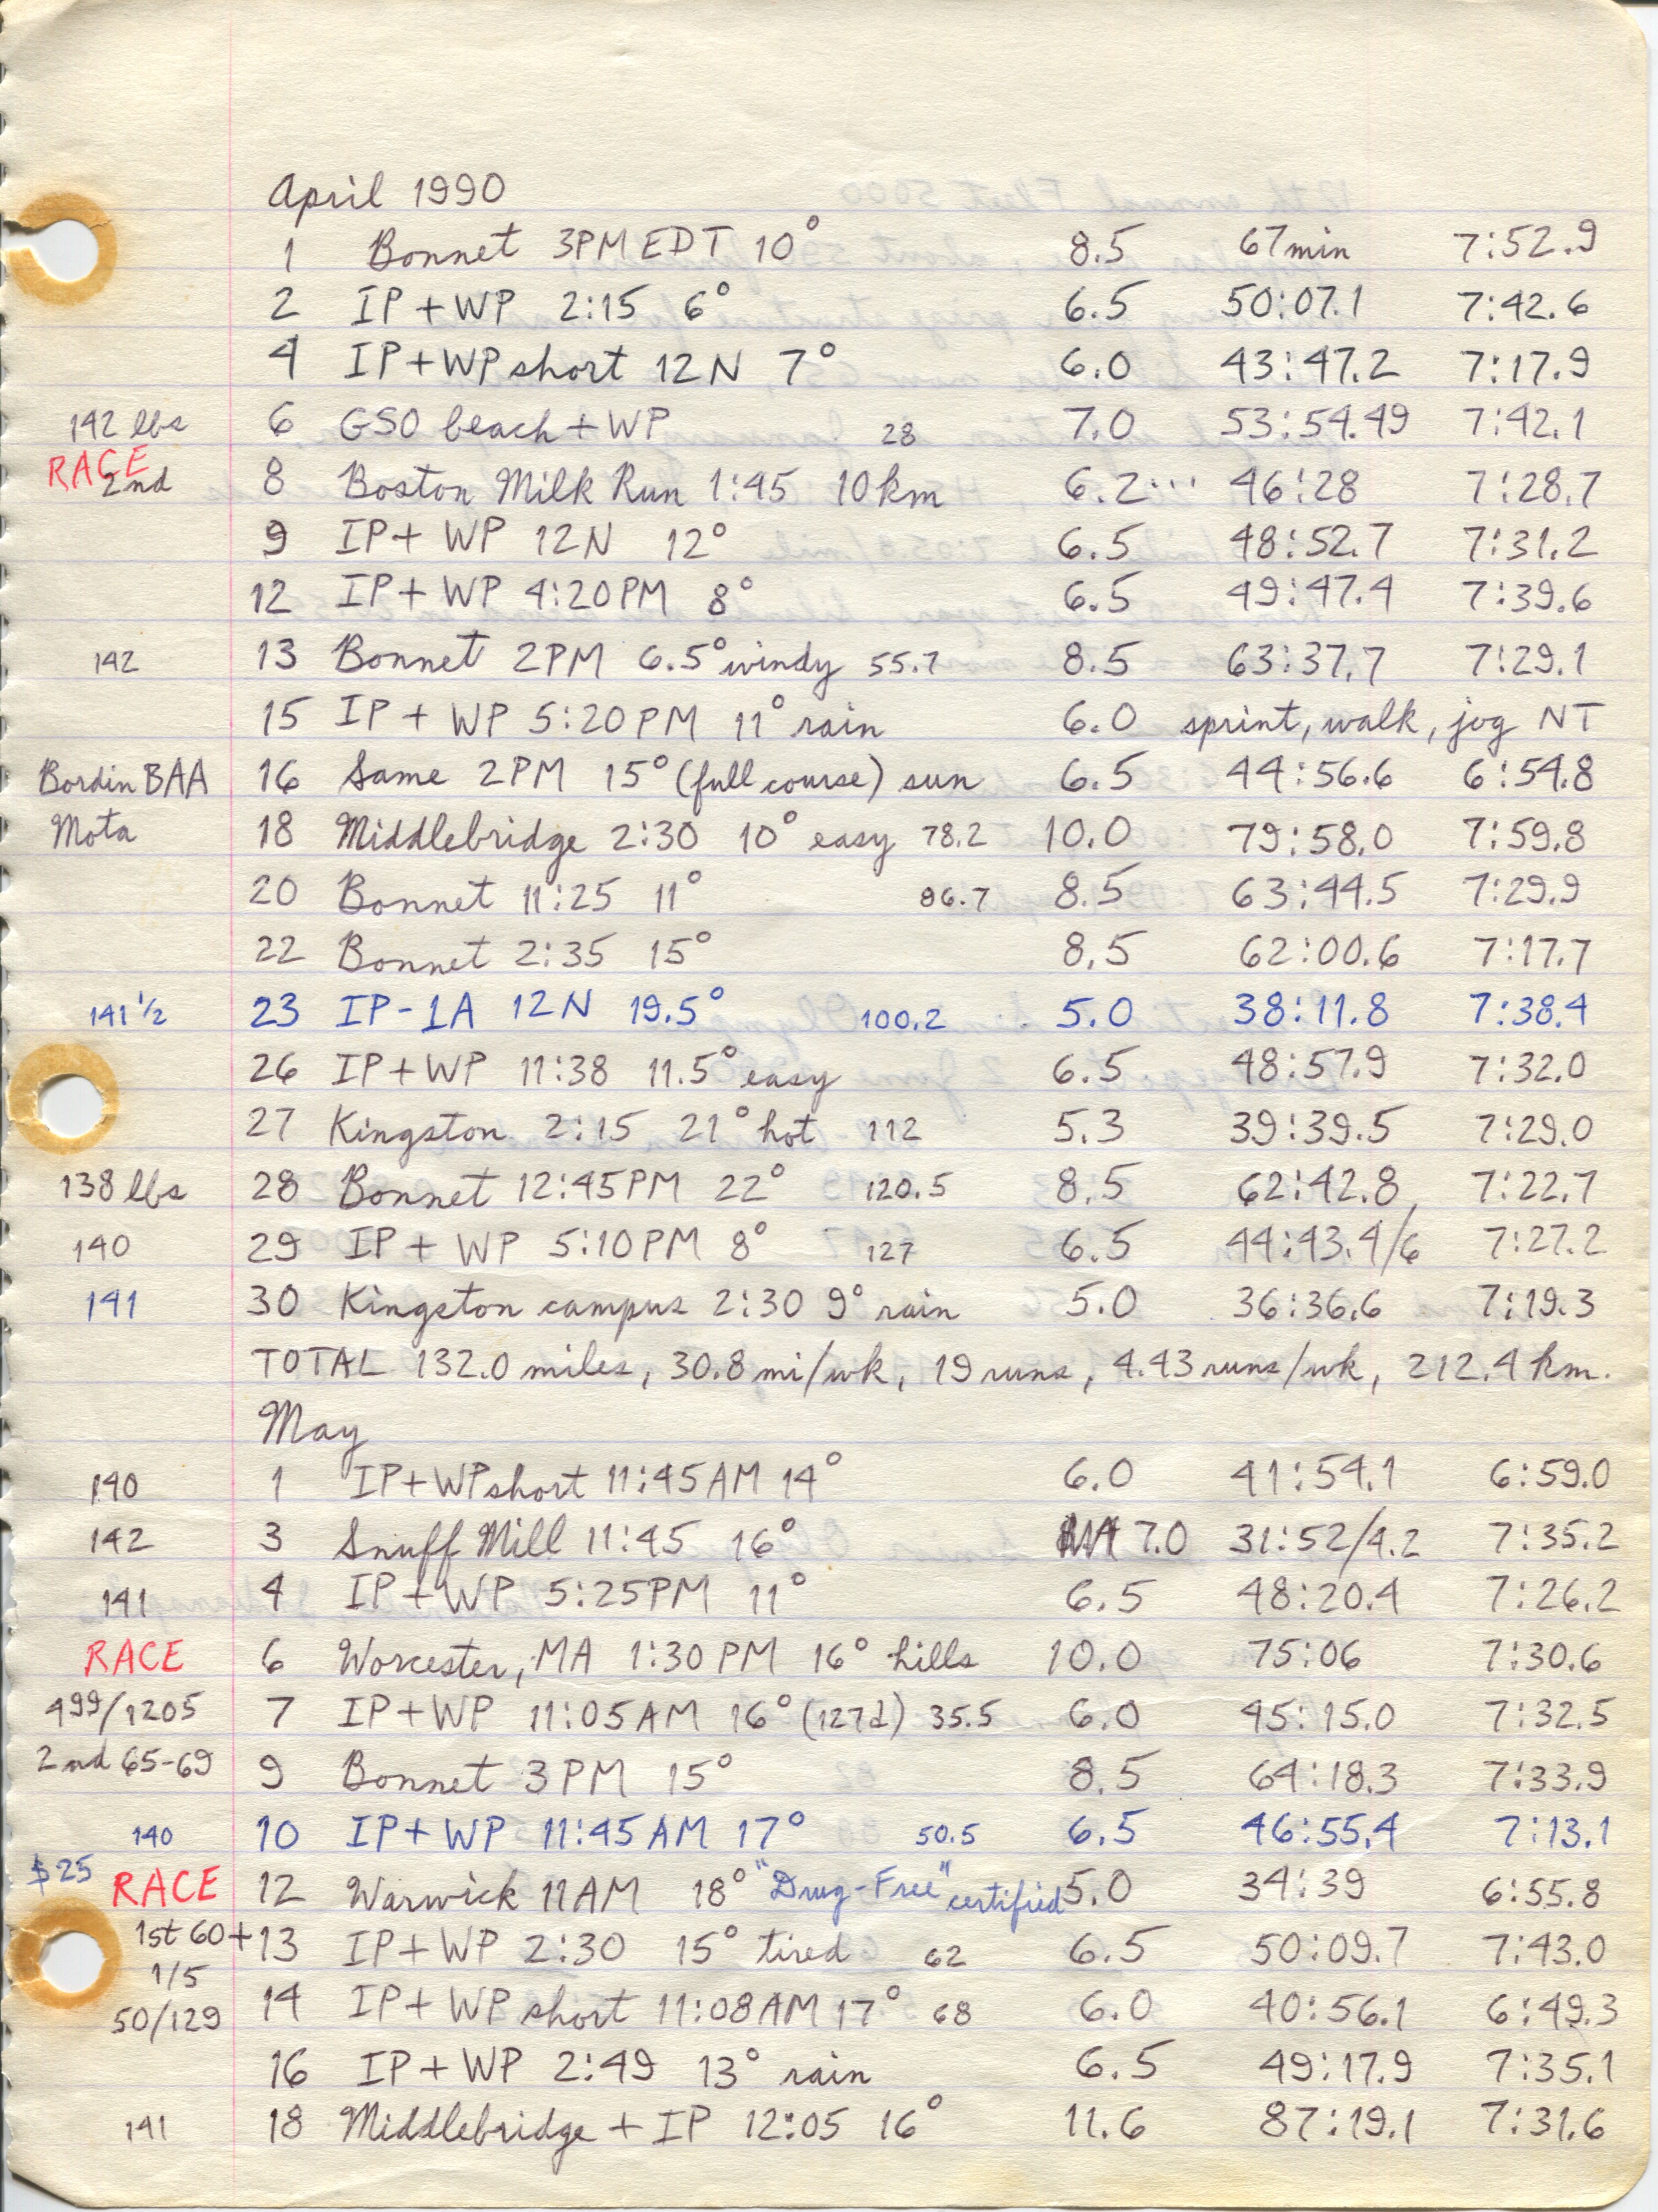 April 1990
1 Bonnet 3PM EDT 10° 8.5 67min 7:52.9
2 IP+WP 2:15 6° 6.5 50:07.1 7:42.6
4 IP+WP short 12N 7° 6.0 43:47.2 7:17.9
142 lbs 6 GSO beach+WP 28 7.0 53:54.49 7:42.1
RACE 2nd 8 Boston Milk Run 1:45 10km 6.2... 46:28 7:28.7
9 IP+WP 12N 12° 6.5 48:52.7 7:31.2
12 IP+WP 4:20PM 8° 6.5 49:47.4 7:39.6
142 13 Bonnet 2PM 6.5° windy 55.7 8.5 63:37.7 7:29.1
15 IP+WP 5:20PM 11° rain 6.0 sprint, walk, jog NT
Bordin BAA 16 Same 2PM 15° (full course) sun 6.5 44:56.6 6:54.8
Mota 18 Middlebridge 2:30 10° easy 78.2 10.0 79:58.0 7:59.8
20 Bonnet 11:25 11° 86.7 8.5 63:44.5 7:29.9
22 Bonnet 2:35 15° 8.5 62:00.6 7:17.7
141 1/2 23 IP-1A 12N 19.5° 100.2 5.0 38:11.8 7:38.4
26 IP+WP 11:38 11.5° easy 6.5 48:57.9 7:32.0
27 Kingston 2:15 21° hot 112 5.3 39:39.5 7:29.0
138 lbs 28 Bonnet 12:45PM 22° 120.5 8.5 62:42.8 7:22.7
140 29 IP+WP 5:10PM 8° 127 6.5 44:43.4/6 7:27.2
141 30 Kingston campus 2:30 9° rain 5.0 36:36.6 7:19.3
TOTAL 132.0 miles, 30.8 mi/wk, 19 runs, 4.43 runs/wk, 212.4 km.
May
140 1 IP+WP short 11:45AM 14° 6.0 41:54.1 6:59.0
142 3 Snuff Mill 11:45 16° 7.0 31:52/4.2 7:35.2
141 4 IP+WP 5:25PM 11° 6.5 48:20.4 7:26.2
RACE 6 Worcester, MA 1:30PM 16° hills 10.0 75:06 7:30.6
499/1205 7 IP+WP 11:05AM 16° (127d) 35.5 6.0 45:15.0 7:32.5
2nd 65-69 9 Bonnet 3PM 15° 8.5 64:18.3 7:33.9
140 10 IP+WP 11:45AM 17° 50.5 6.5 46:55.4 7:13.1
$25 RACE 12 Warwick 11AM 18° "Drug-Free" certified 5.0 34:39 6:55.8
1st 60+ 13 IP+WP 2:30 15° tired 62 6.5 50:09.7 7:43.0
1/5
50/129 14 IP+WP short 11:08AM 17° 68 6.0 40:56.1 6:49.3
16 IP+WP 2:49 13° rain 6.5 49:17.9 7:35.1
141 18 Middlebridge + IP 12:05 16° 11.6 87:19.1 7:31.6